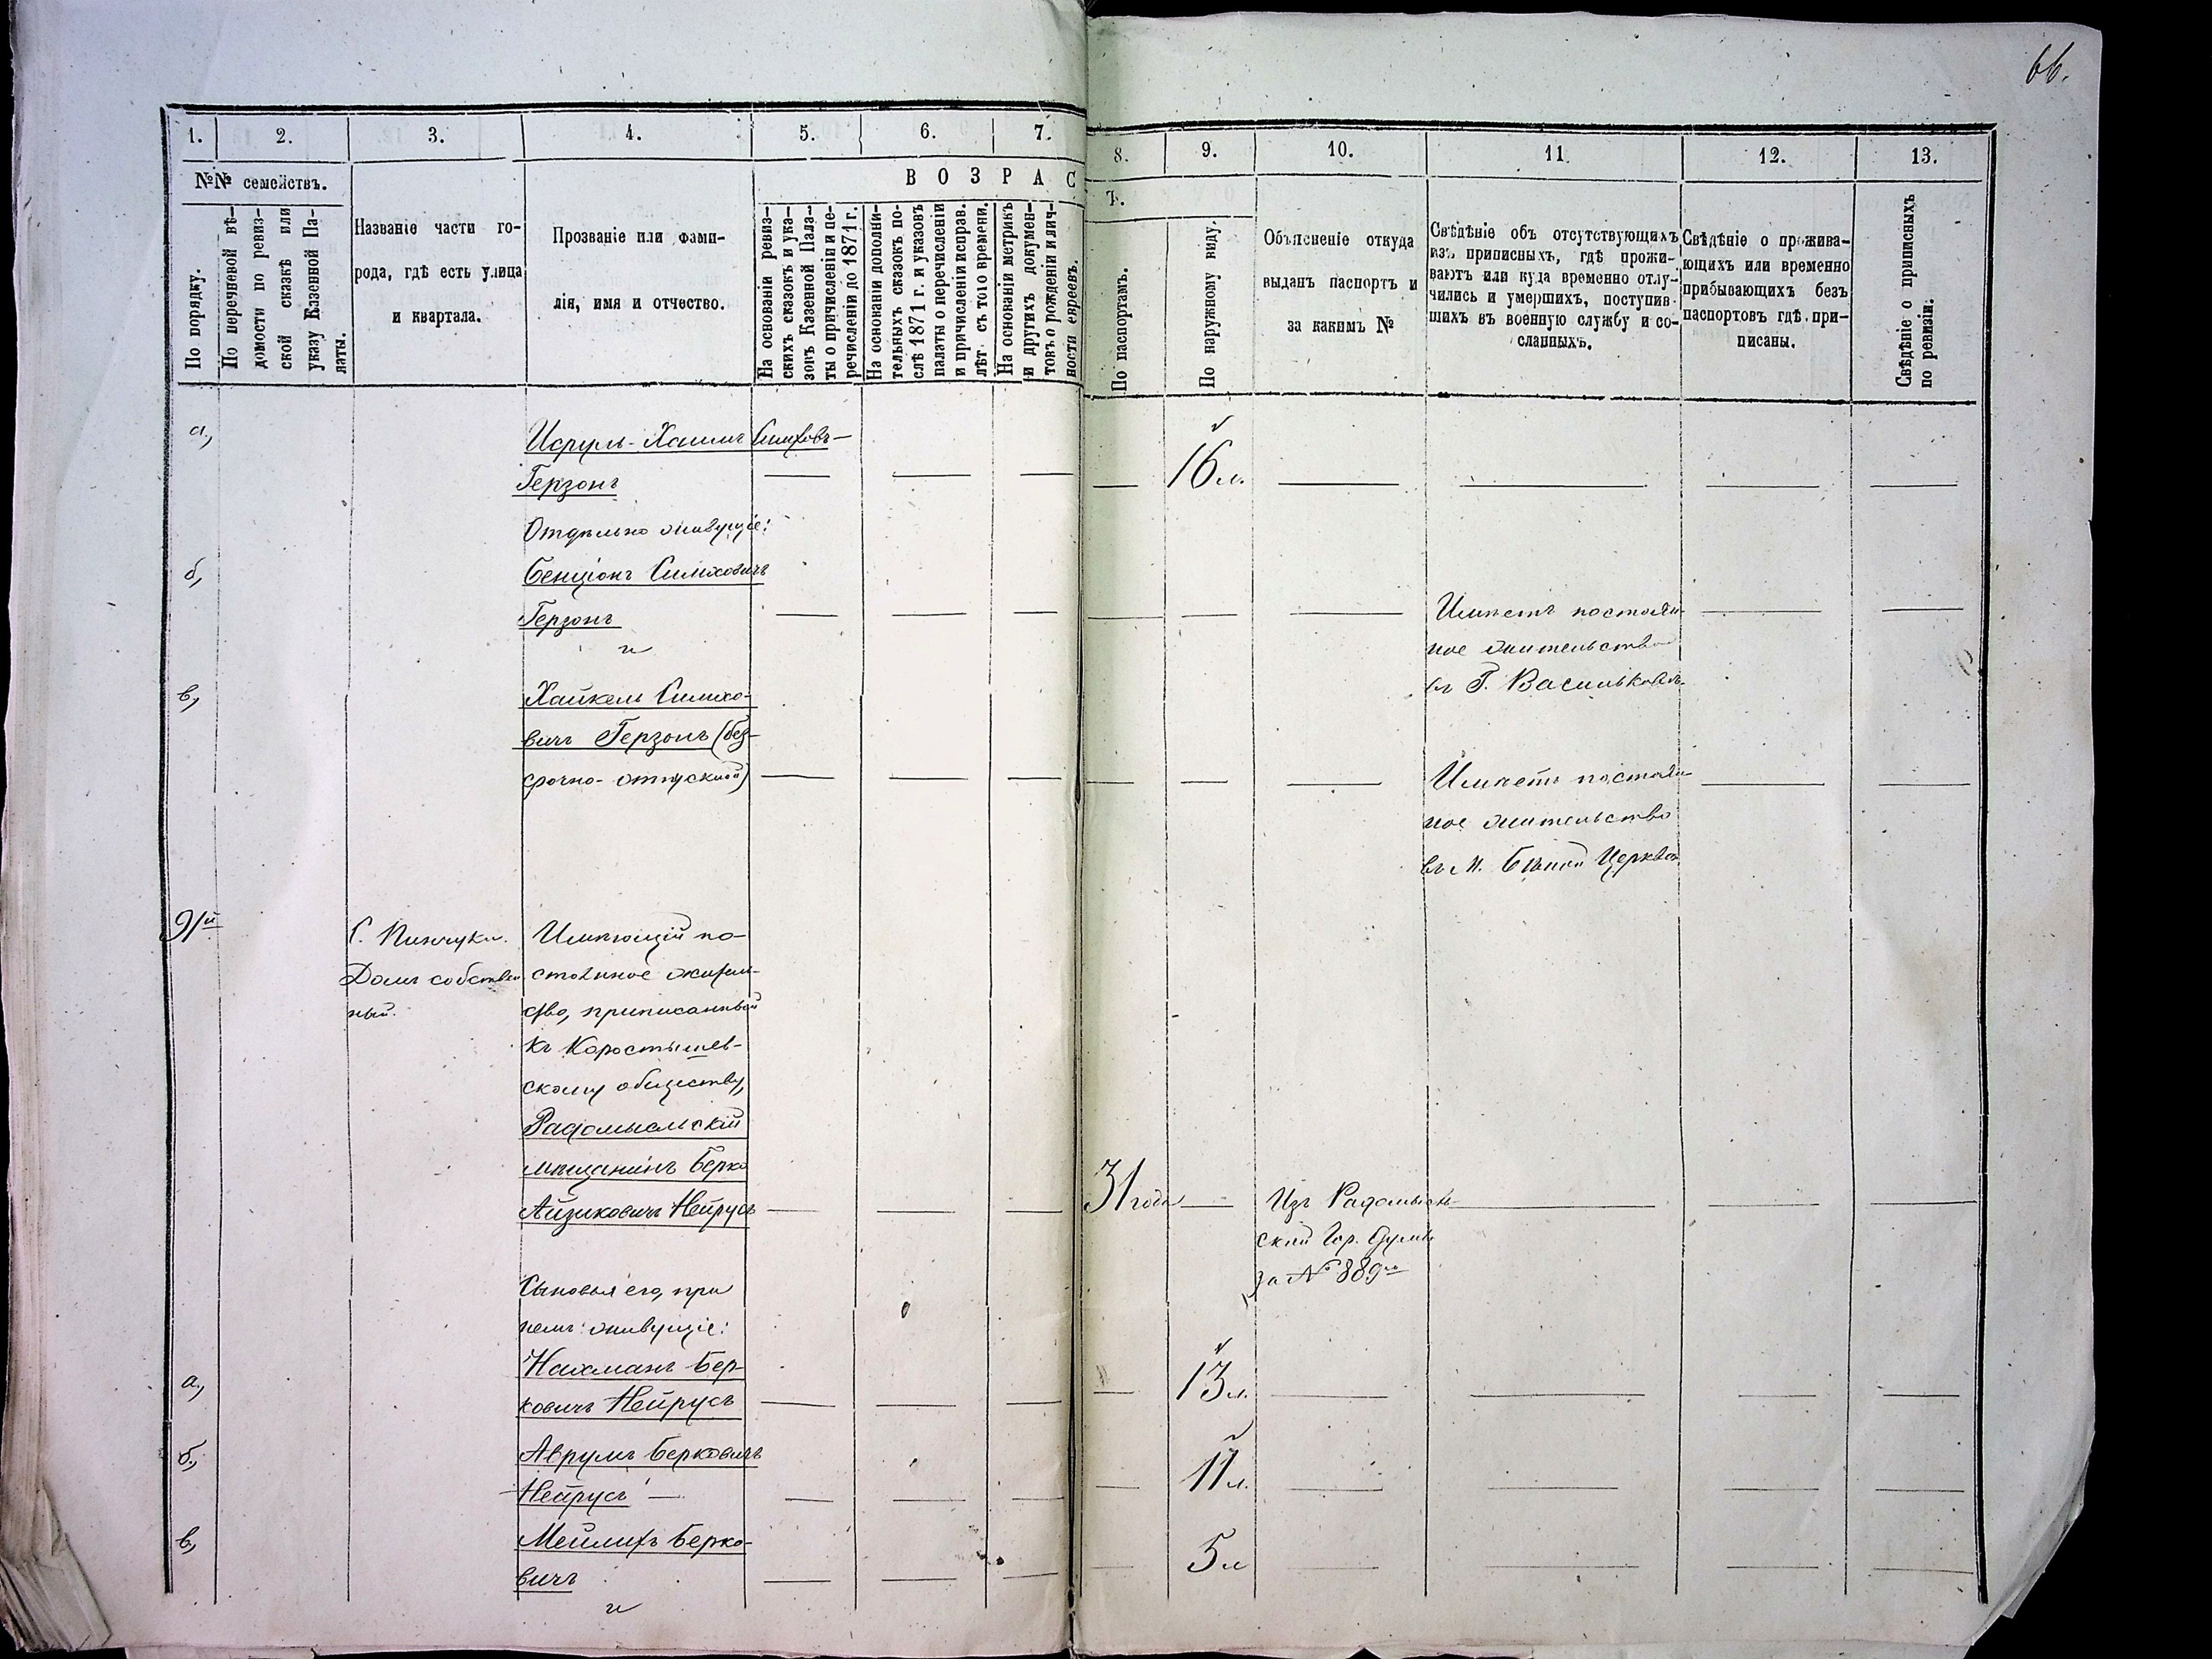 66.
1.
2.
3.
4.
5.
6.
7.
8.
9.
10.
11.
12.
13.
№№ семействъ.
ВОЗРАС
Т.
По порядку.
По перечневой вѣ-
домости по ревиз-
ской сказкѣ или
указу Казенной Па-
латы.
Названіе части го-
рода, гдѣ есть улица
и квартала.
Прозваніе или фами-
лія, имя и отчество.
На основаніи ревиз-
скихъ сказокъ и ука-
зокъ Казенной Пала-
ты о причисленіи и пе-
речисленіи до 1871 г.
На основаніи дополни-
тельныхъ сказокъ по-
слѣ 1871 г. и указовъ
палаты о перечисленіи
и причисленіи исправ.
лѣт. съ того времени.
На основаніи метрикъ
и другихъ докумен-
товъ о рожденіи и лич-
ности евреевъ.
По паспортамъ.
По наружному виду.
Объясненіе откуда
выданъ паспортъ и
за какимъ №
Свѣдѣніе объ отсутствующихъ
изъ приписныхъ, гдѣ прожи-
ваютъ или куда временно отлу-
чились и умершихъ, поступив-
шихъ въ военную службу и со-
сланныхъ.
Свѣдѣніе о прожива-
ющихъ или временно
прибывающихъ безъ
паспортовъ гдѣ при-
писаны.
Свѣдѣніе о приписныхъ
по ревизіи.
а,
Исруль-Хаимъ Симховъ—
Герзонъ
16 л.
Отдѣльно живущіе:
б,
Бенціонъ Симховичъ
Герзонъ
Имѣетъ постоян-
ное жительство
въ Г. Васильковѣ.
и
в,
Хайкель Симхо-
вичъ Герзонъ (без-
срочно-отпускной)
Имѣетъ постоян-
ное жительство
въ м. Бѣлой Церкви
91й
С. Пинчуки.
Домъ собствен
ный.
Имѣющій по-
стоянное житель-
ство, приписанный
къ Коростышев-
скому обществу,
Радомысльскій
мѣщанинъ Берко
Айзиковичъ Нейрусъ
31 года
Изъ Радомысль-
ской Гор. Думы
за № 889мъ
Сыновья его, при
немъ живущіе:
а,
Нахманъ Бер-
ковичъ Нейрусъ
13 л.
б,
Аврумъ Берковичъ
Нейрусъ —
11 л.
в,
Мейлихъ Берко-
вичъ
5 л
и